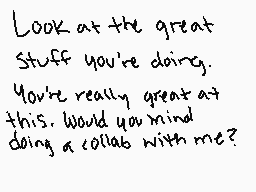 Look at the great
stuff you're doing.
You're really great at
this. Would you mind
doing a collab with me?